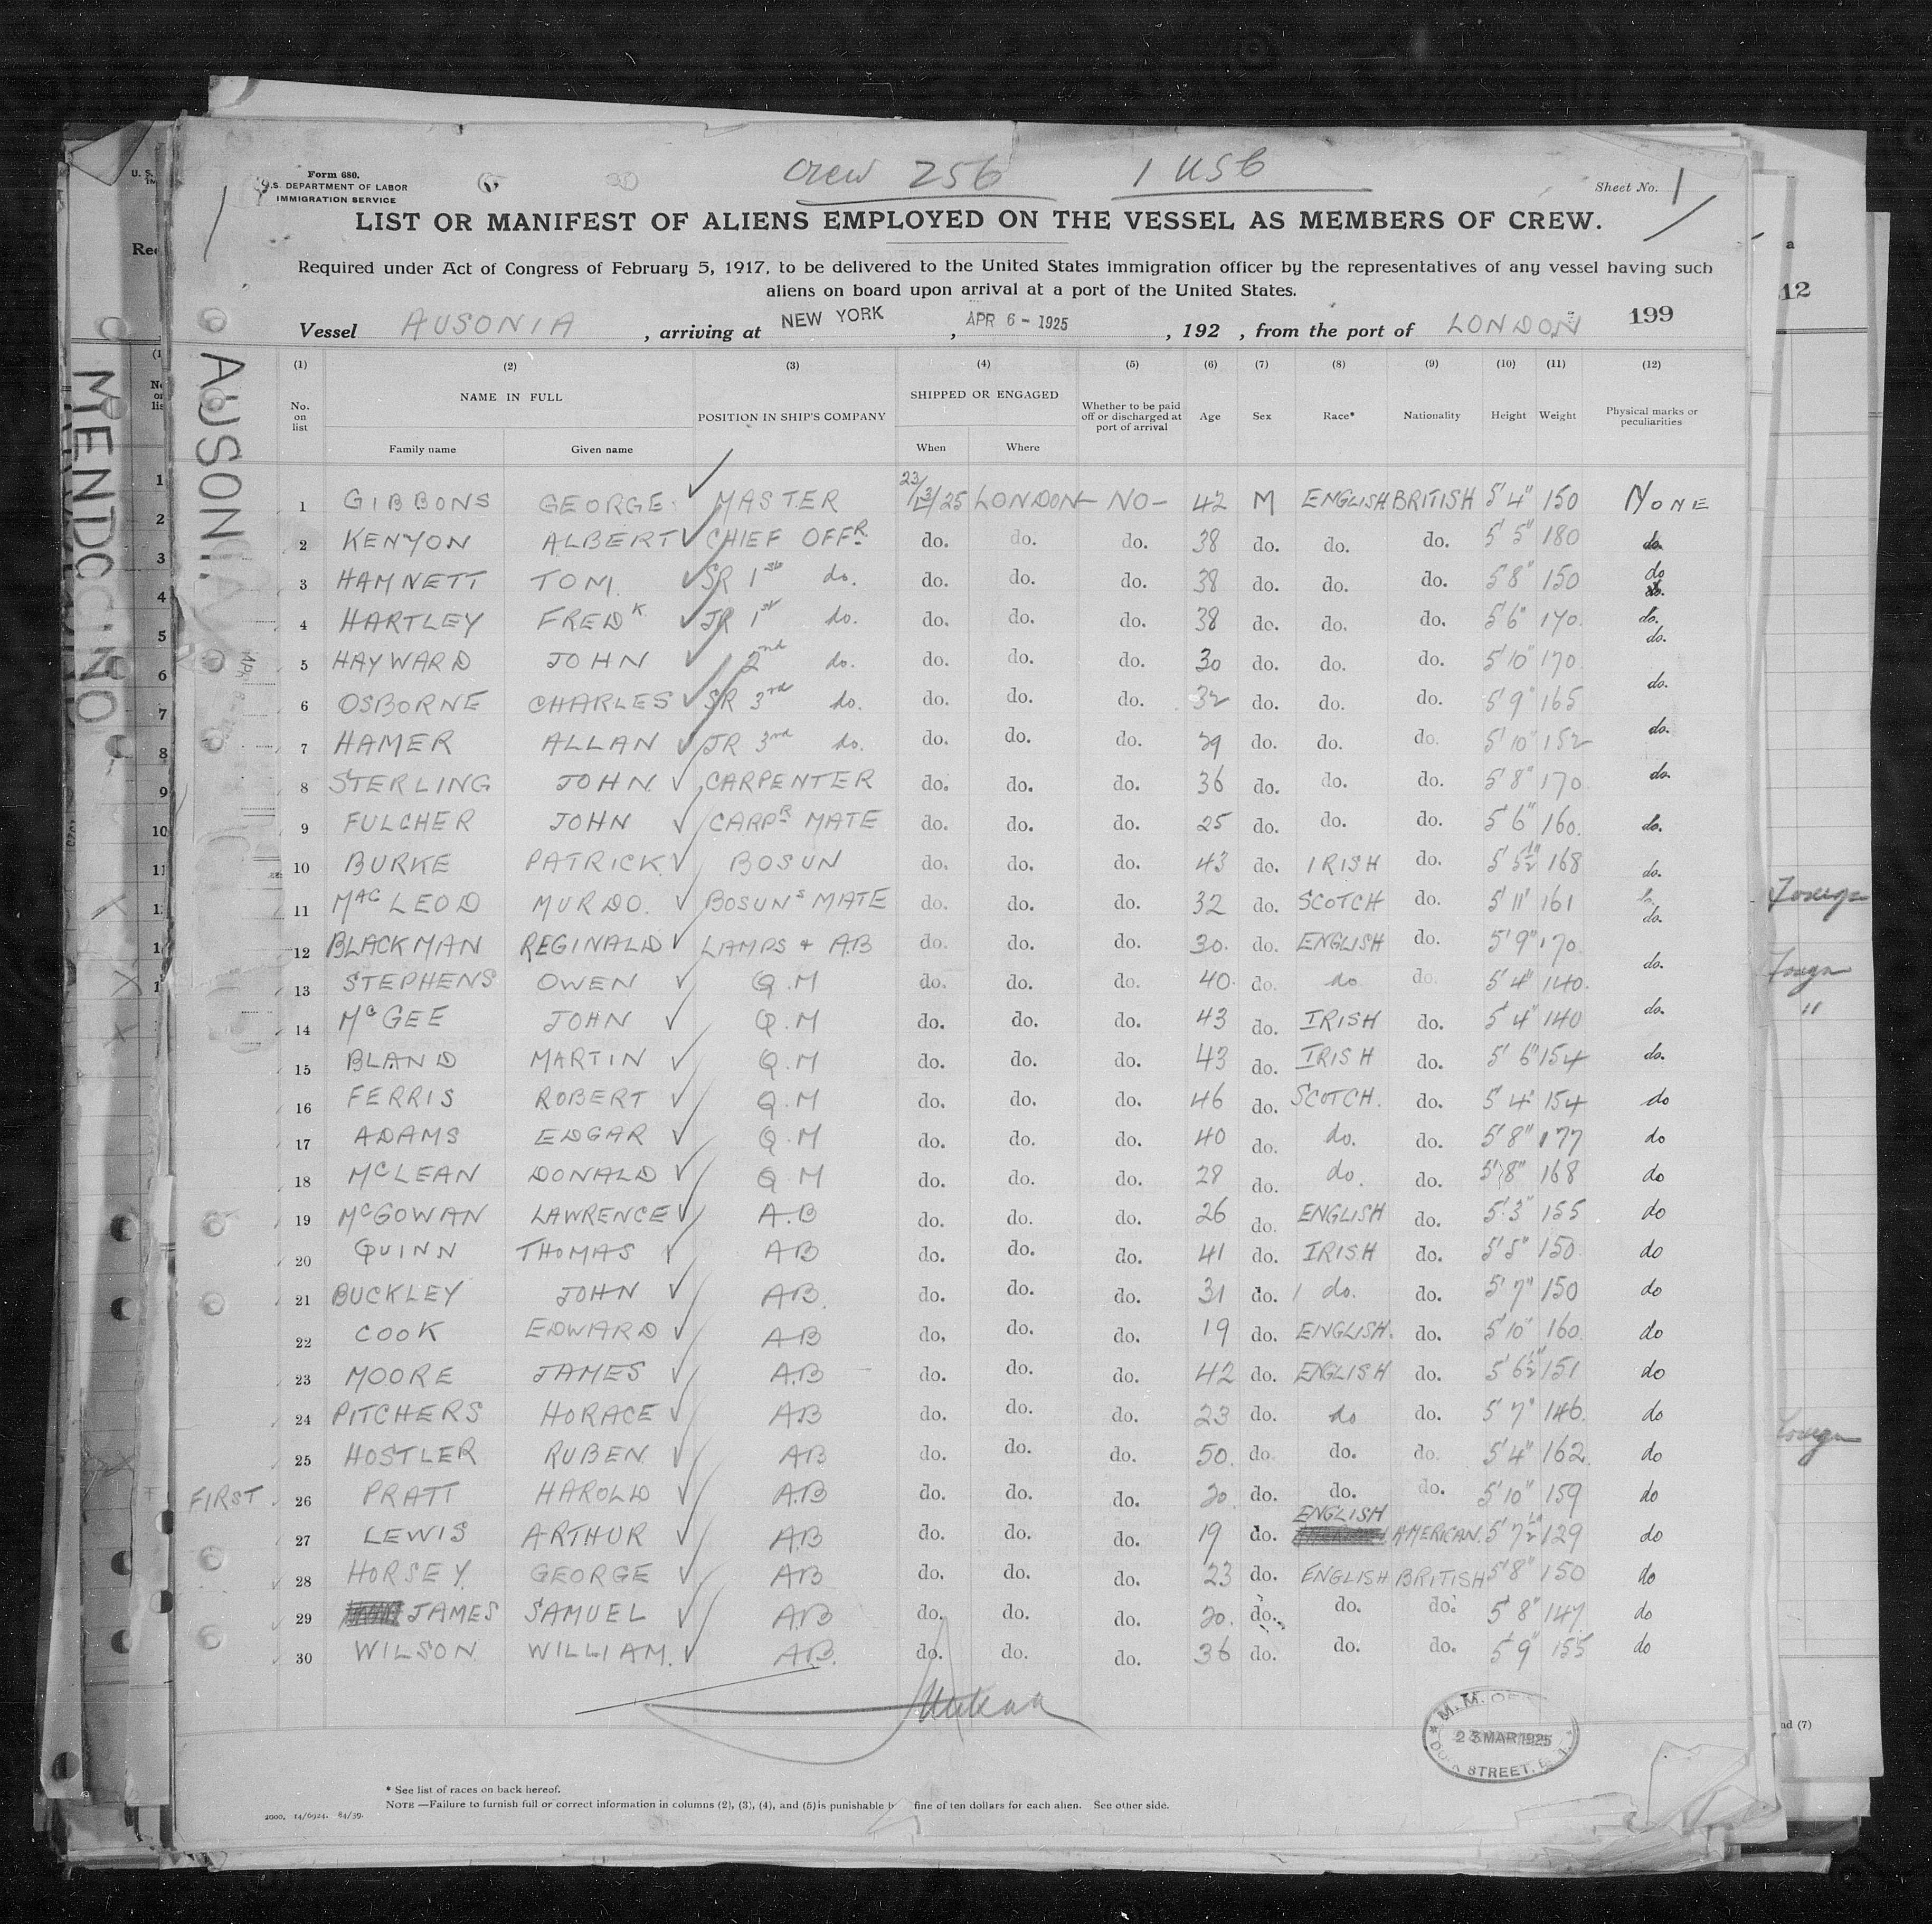 Form 680.
U.S. DEPARTMENT OF LABOR
IMMIGRATION SERVICE
Crew 256 1 USC
Sheet No. 1
LIST OR MANIFEST OF ALIENS EMPLOYED ON THE VESSEL AS MEMBERS OF CREW.
Required under Act of Congress of February 5, 1917, to be delivered to the United States immigration officer by the representatives of any vessel having such
aliens on board upon arrival at a port of the United States.
199
Vessel AUSONIA , arriving at NEW YORK , APR 6 - 1925 , 192 , from the port of LONDON
(1) (2) (3) (4) (5) (6) (7) (8) (9) (10) (11) (12)
No. on list NAME IN FULL POSITION IN SHIP'S COMPANY SHIPPED OR ENGAGED Whether to be paid off or discharged at port of arrival Age Sex Race* Nationality Height Weight Physical marks or peculiarities
Family name Given name When Where
1 GIBBONS GEORGE MASTER 23/3/25 LONDON - NO - 42 M ENGLISH BRITISH 5'4" 150 NONE
2 KENYON ALBERT CHIEF OFFR do. do. do. 38 do. do. do. 5'5" 180 do.
3 HAMNETT TOM. SR 1st do. do. do. do. 38 do. do. do. 5'8" 150 do
4 HARTLEY FREDK JR 1st do. do. do. do. 38 do. do. do. 5'6" 170. do.
5 HAYWARD JOHN 2nd do. do. do. do. 30 do. do. do. 5'10" 170 do.
6 OSBORNE CHARLES SR 3rd do. do. do. do. 32 do. do. do. 5'9" 165 do.
7 HAMER ALLAN JR 3rd do. do. do. do. 29 do. do. do. 5'10" 152 do.
8 STERLING JOHN. CARPENTER do. do. do. 36 do. do. do. 5'8" 170. do.
9 FULCHER JOHN CARPR MATE do. do. do. 25 do. do. do. 5'6" 160. do.
10 BURKE PATRICK BOSUN do. do. do. 43 do. IRISH do. 5'5½" 168 do.
11 MACLEOD MURDO. BOSUNS MATE do. do. do. 32 do. SCOTCH do. 5'11" 161 do.
12 BLACKMAN REGINALD LAMPS + AB do. do. do. 30. do. ENGLISH do. 5'9" 170. do.
13 STEPHENS OWEN Q.M do. do. do. 40. do. do do. 5'4" 140. do.
14 McGEE JOHN Q.M do. do. do. 43 do. IRISH do. 5'4" 140 do.
15 BLAND MARTIN Q.M do. do. do. 43 do. IRISH do. 5'6" 154 do.
16 FERRIS ROBERT Q.M do. do. do. 46 do. SCOTCH. do. 5'4" 154 do
17 ADAMS EDGAR Q.M do. do. do. 40 do. do. do. 5'8" 177 do
18 McLEAN DONALD Q.M do. do. do. 28 do. do. do. 5'8" 168 do
19 McGOWAN LAWRENCE A.B do. do. do. 26 do. ENGLISH do. 5'3" 155 do
20 QUINN THOMAS AB do. do. do. 41 do. IRISH do. 5'5" 150. do
21 BUCKLEY JOHN AB. do. do. do. 31 do. do. do. 5'7" 150 do
22 COOK EDWARD AB do. do. do. 19 do. ENGLISH. do. 5'10" 160. do
23 MOORE JAMES A.B do. do. do. 42 do. ENGLISH do. 5'6½" 151 do
24 PITCHERS HORACE AB do. do. do. 23 do. do do. 5'7" 146. do
25 HOSTLER RUBEN. AB do. do. do. 50. do. do. do. 5'4" 162. do
FIRST 26 PRATT HAROLD A.B do. do. do. 20. do. do. do. 5'10" 159 do
27 LEWIS ARTHUR A.B do. do. do. 19 do. ENGLISH AMERICAN. 5'7½" 129 do
28 HORSEY GEORGE AB do. do. do. 23 do. ENGLISH BRITISH 5'8" 150 do
29 JAMES SAMUEL A.B do. do. do. 20. do. do. do. 5'8" 147. do
30 WILSON WILLIAM. AB. do. do. do. 36 do. do. do. 5'9" 155 do
23 MAR 1925
STREET.
* See list of races on back hereof.
NOTE —Failure to furnish full or correct information in columns (2), (3), (4), and (5) is punishable fine of ten dollars for each alien. See other side.
2000, 14/6924. 84/39.
AUSONIA
MENDOCINO
12
Foreign
Foreign
"
Foreign
nd (7)